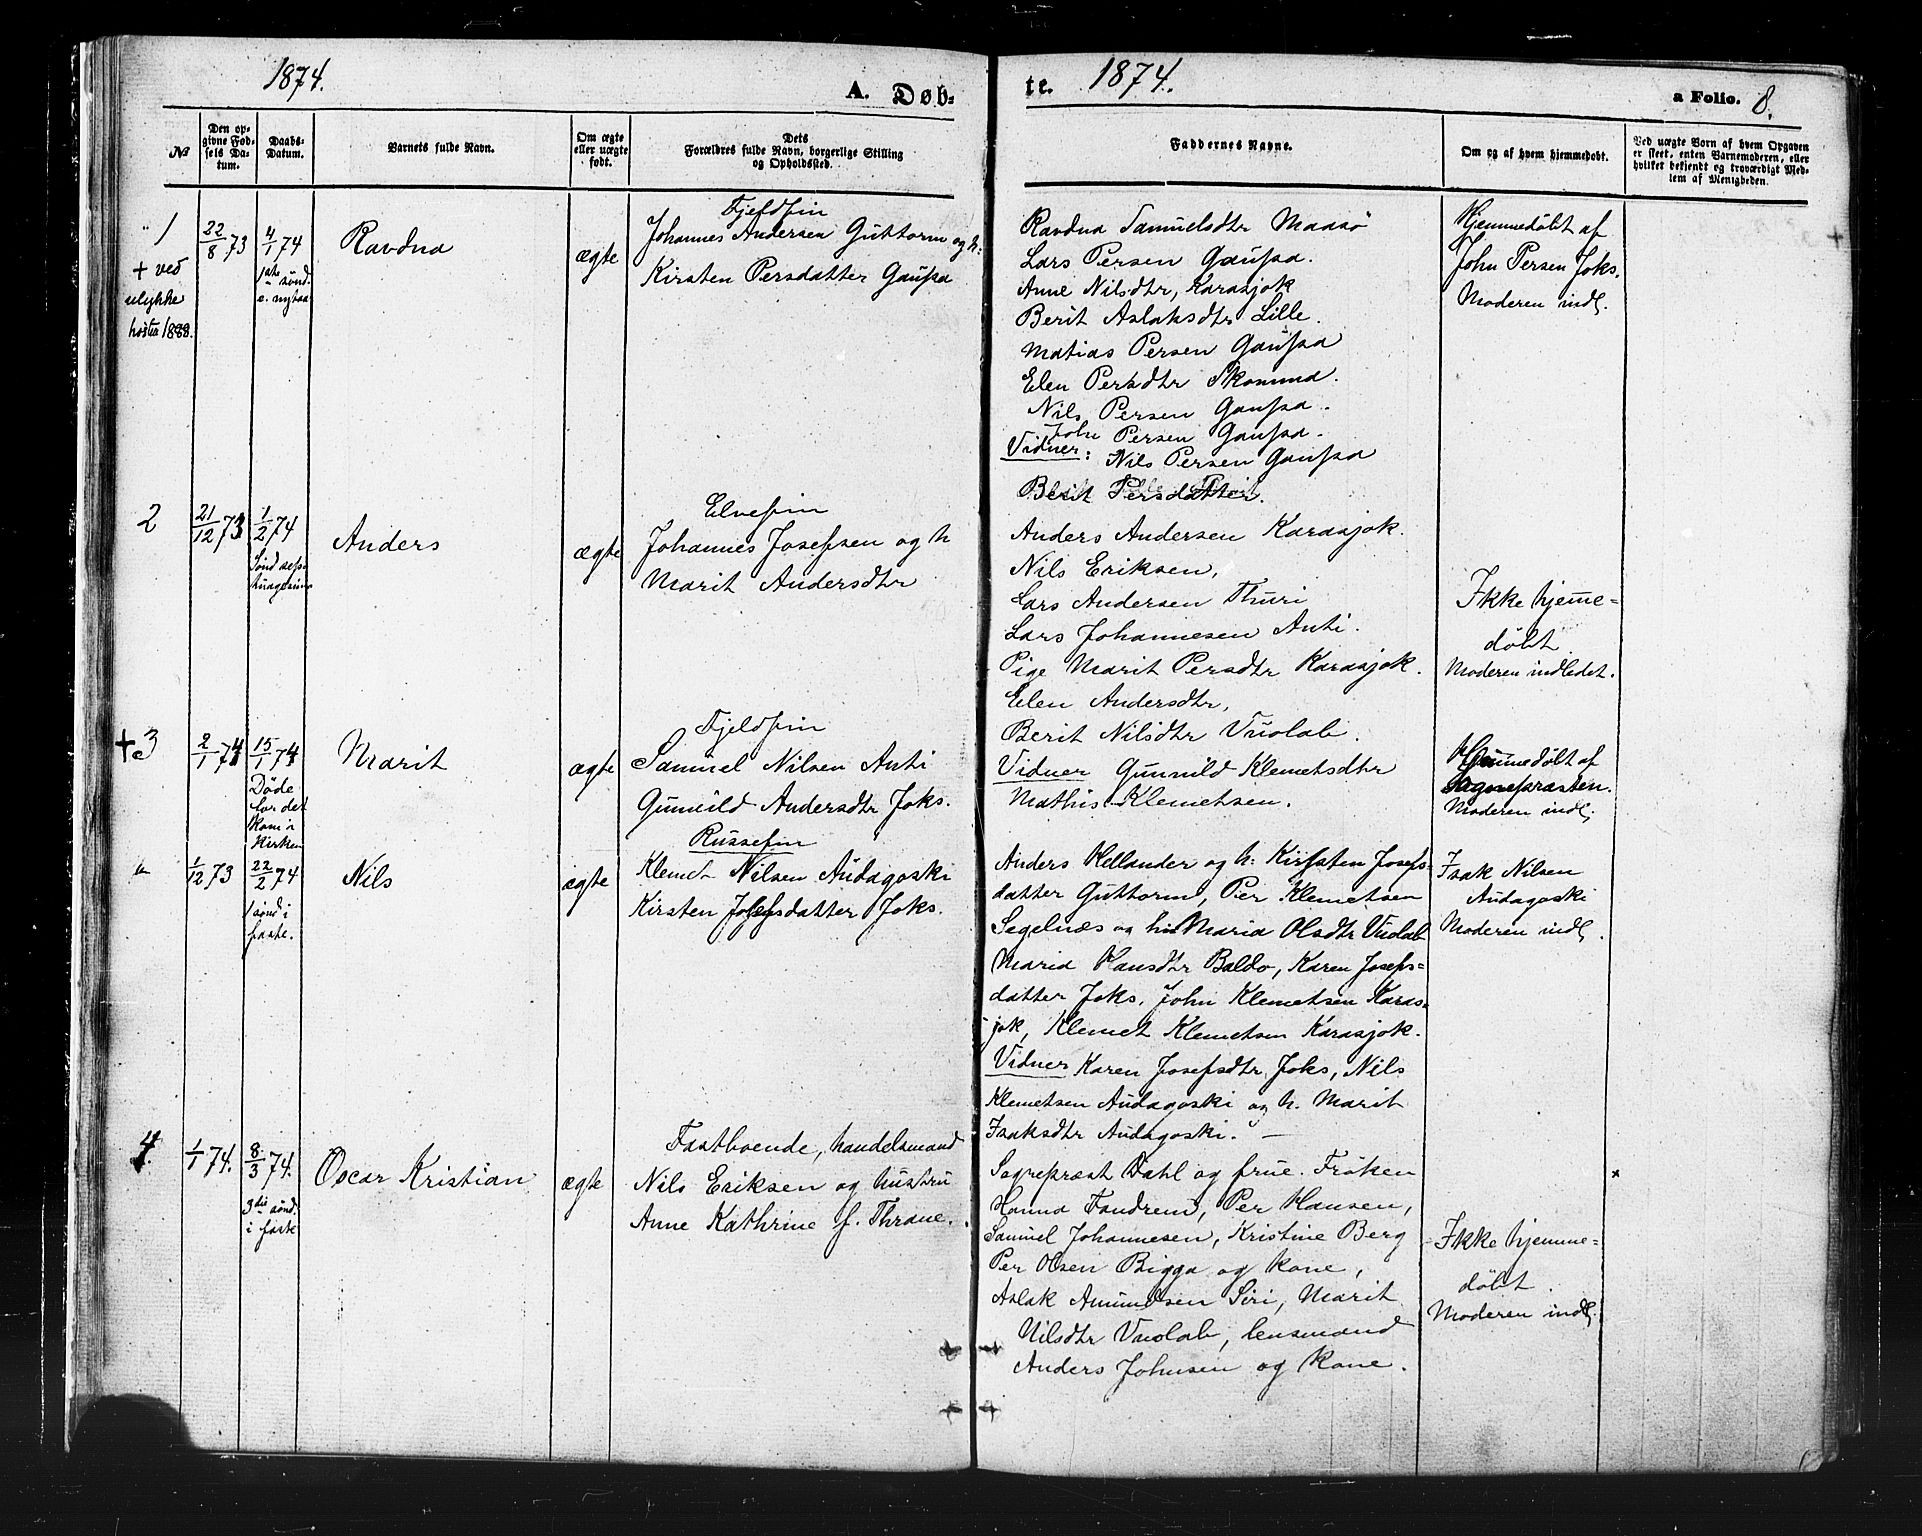 1874.
A. Døb-
№
Den op-
givne Fød-
sels Da-
tum.
Daabs-
Datum.
Barnets fulde Navn.
Om ægte
eller uægte
født.
Dets
Forældres fulde Navn, borgerlige Stilling
og Opholdssted.
1
+ ved
ulykke
høsten 1888.
22/8 73
4/1 74
1ste sönd.
e. nytaar
Ravdna
ægte
Fjeldfin
Johannes Andersen Guttorm og h:
Kirsten Persdatter Gaufsa
2
21/12 73
1/2 74
Sönd.
Anders
ægte
Elvefin
Johannes Josefsen og h
Marit Andersdtr
+3
2/1 74
15/1 74
Døde
for det
kom i
kirken
Marit
ægte
Fjeldfin
Samuel Nilsen Anti
Guneild Andersdtr Joks.
1/12 73
22/2 74
1 sönd i
faste.
Nils
ægte
Russefin
Klemet Nilsen Audagoski
Kirsten Josefsdatter Joks.
4.
1/1 74.
8/3 74.
3die sönd.
i faste
Oscar Kristian
ægte
Fastboende, handelsmand
Nils Eriksen og hustru
Anne Kathrine f. Thrane.
te. 1874.
a Folio. 8.
Faddernes Navne.
Om og af hvem hjemmedøbt.
Ved uægte Børn af hvem Opgaven
er skeet, enten Barnemoderen, eller
hvilket bekjendt og troværdigt Med-
lem af Menigheden.
Ravdna Samuelsdtr Maasø
Lars Persen Gaufsa.
Anne Nilsdtr, Karasjok
Berit Aslaksdtr Lille.
Matias Persen Gaufsa
Elen Persdtr Skoumd.
Nils Persen Gaufsa.
John Persen Gaufsa.
Vidner: Nils Persen Gaufsa
Berit Persdatter.
Hjemmedöbt af
John Persen Joks.
Moderen indl.
Anders Andersen Karasjok.
Nils Eriksen,
Lars Andersen Thuri
Lars Johannesen Anti.
Pige Marit Persdtr Karasjok.
Elen Andersdtr,
Berit Nilsdtr Vuolab.
Ikke hjeme=
döbt.
Moderen indledet.
Vidner Gunnild Klemetsdtr
Mathis Klemetsen.
Hjemmedöbt af
Sognepræsten.
Moderen indl.
Anders Hellander og h: Kirsten Josefs-
datter Guttorm, Per Klemetsen
Segelnæs og h: Maria Olsdtr Vuolab
Maria Hansdtr Baldo, Karen Josefs=
datter Joks, John Klemetsen Karas-
jok, Klemet Klemetsen Karasjok.
Vidner Karen Josefsdtr Joks, Nils
Klemetsen Audagoski og h. Marit
Isaksdtr Audagoski. —
Isak Nilsen
Audagoski
Moderen indl.
Sognepræst Dahl og frue. Fröken
Hanna Fandrem, Per Hansen,
Samuel Johannesen, Kristine Berg
Per Olsen Bigga og kone,
Aslak Amundsen Siri, Marit
Nilsdtr Vuolab, lensmand
Anders Johnsen og kone.
Ikke hjemme=
döbt.
Moderen indl.